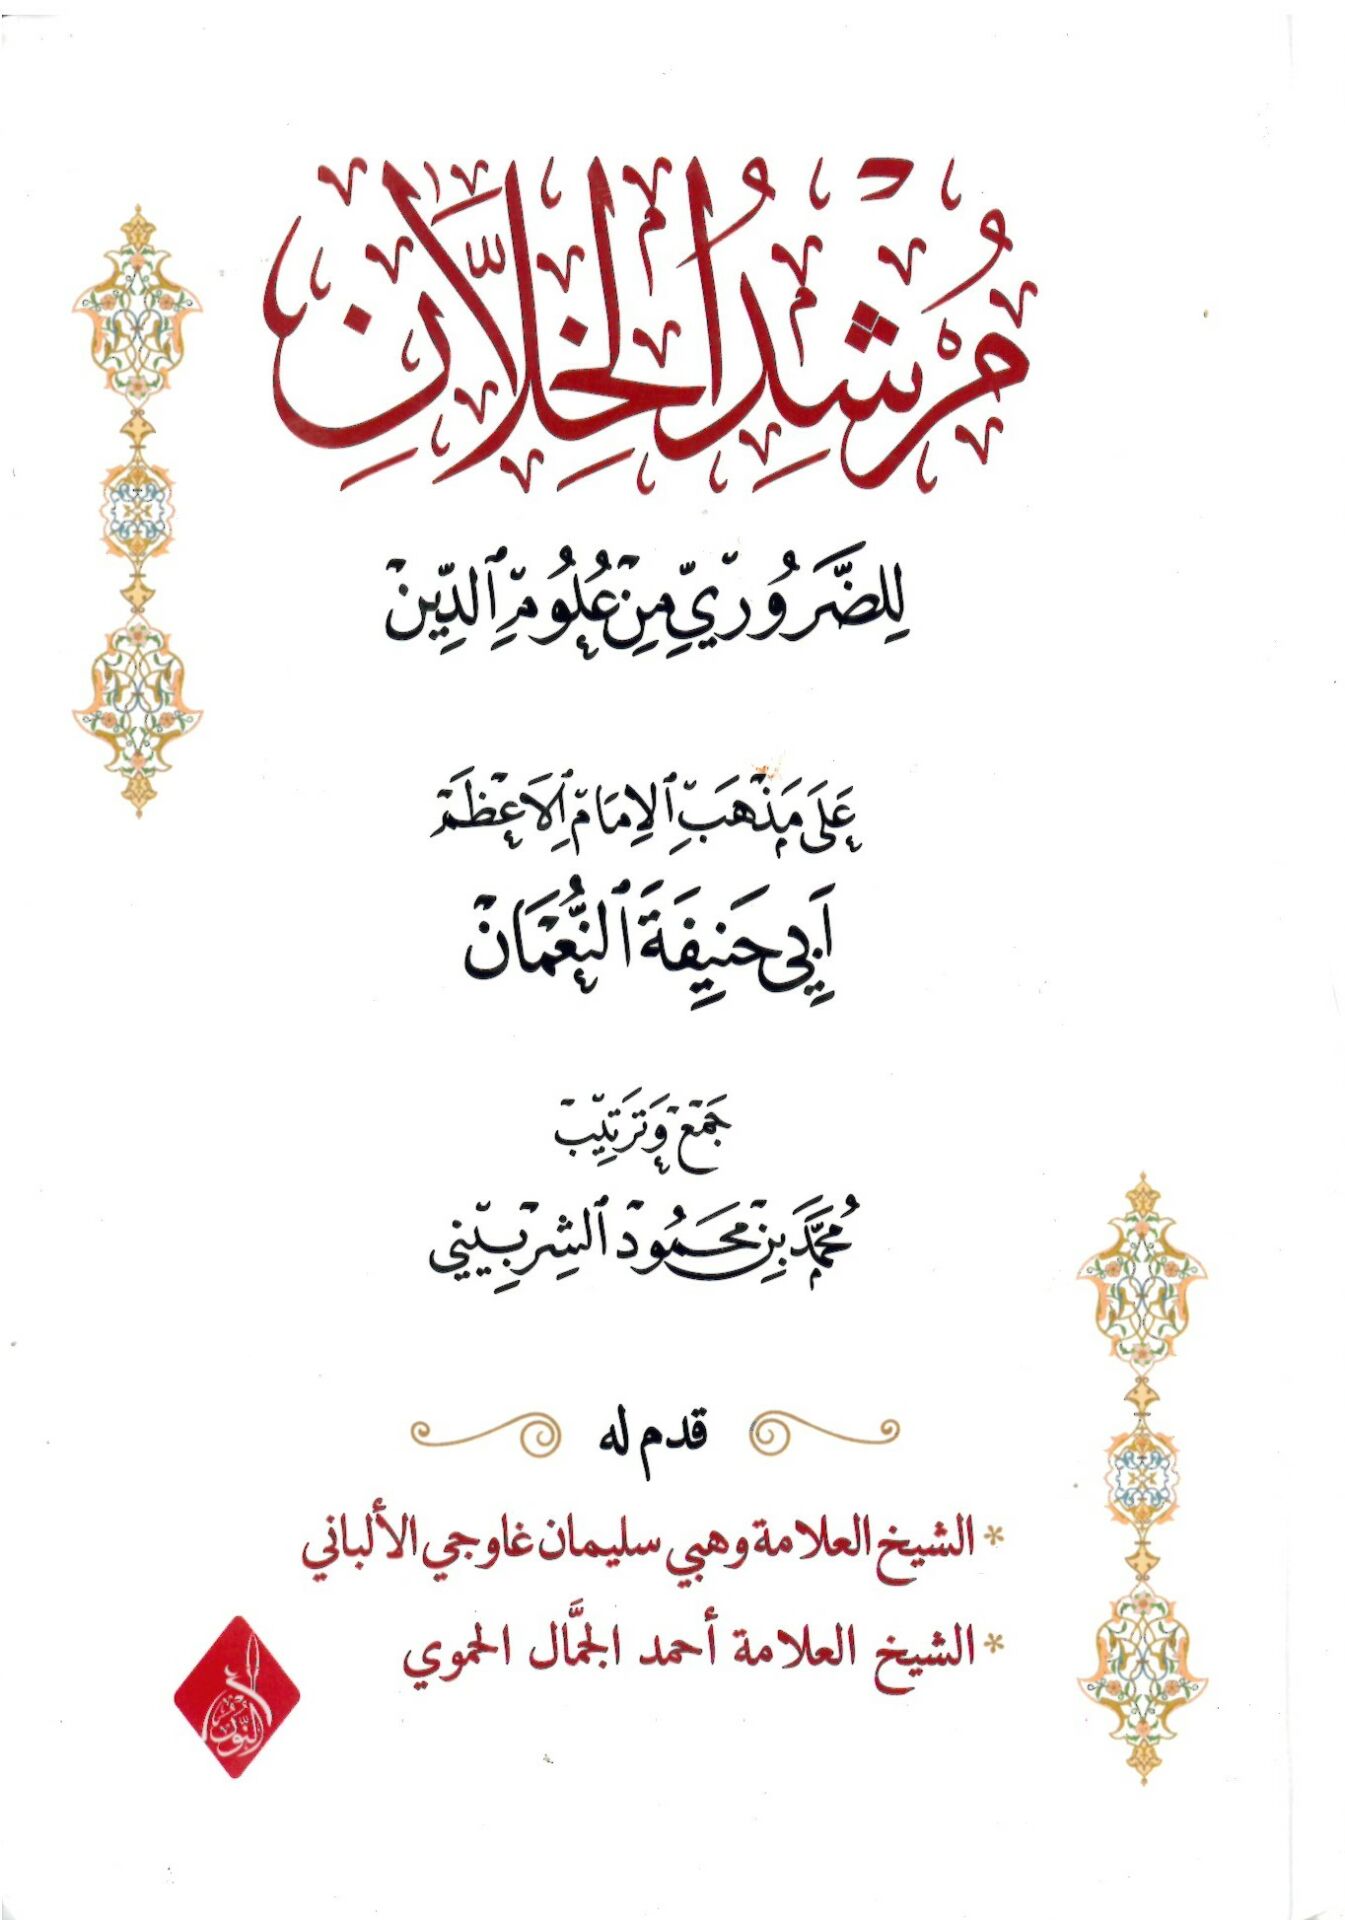 مُرْشِدُ الخِلَّانِ
لِلضَّرُورِيِّ مِنْ عُلُومِ ٱلدِّينْ
عَلَى مَذْهَبِ ٱلإِمَامِ ٱلأَعْظَمْ
أَبِي حَنِيفَةَ ٱلنُّعْمَانْ
جَمْعْ وَتَرْتِيبْ
مُحَمَّدْ بِنْ مَحَمُودْ ٱلشِرْبِينِي
قدم له
* الشيخ العلامة وهبي سليمان غاوجي الألباني
* الشيخ العلامة أحمد الجمَّال الحموي
النُّور